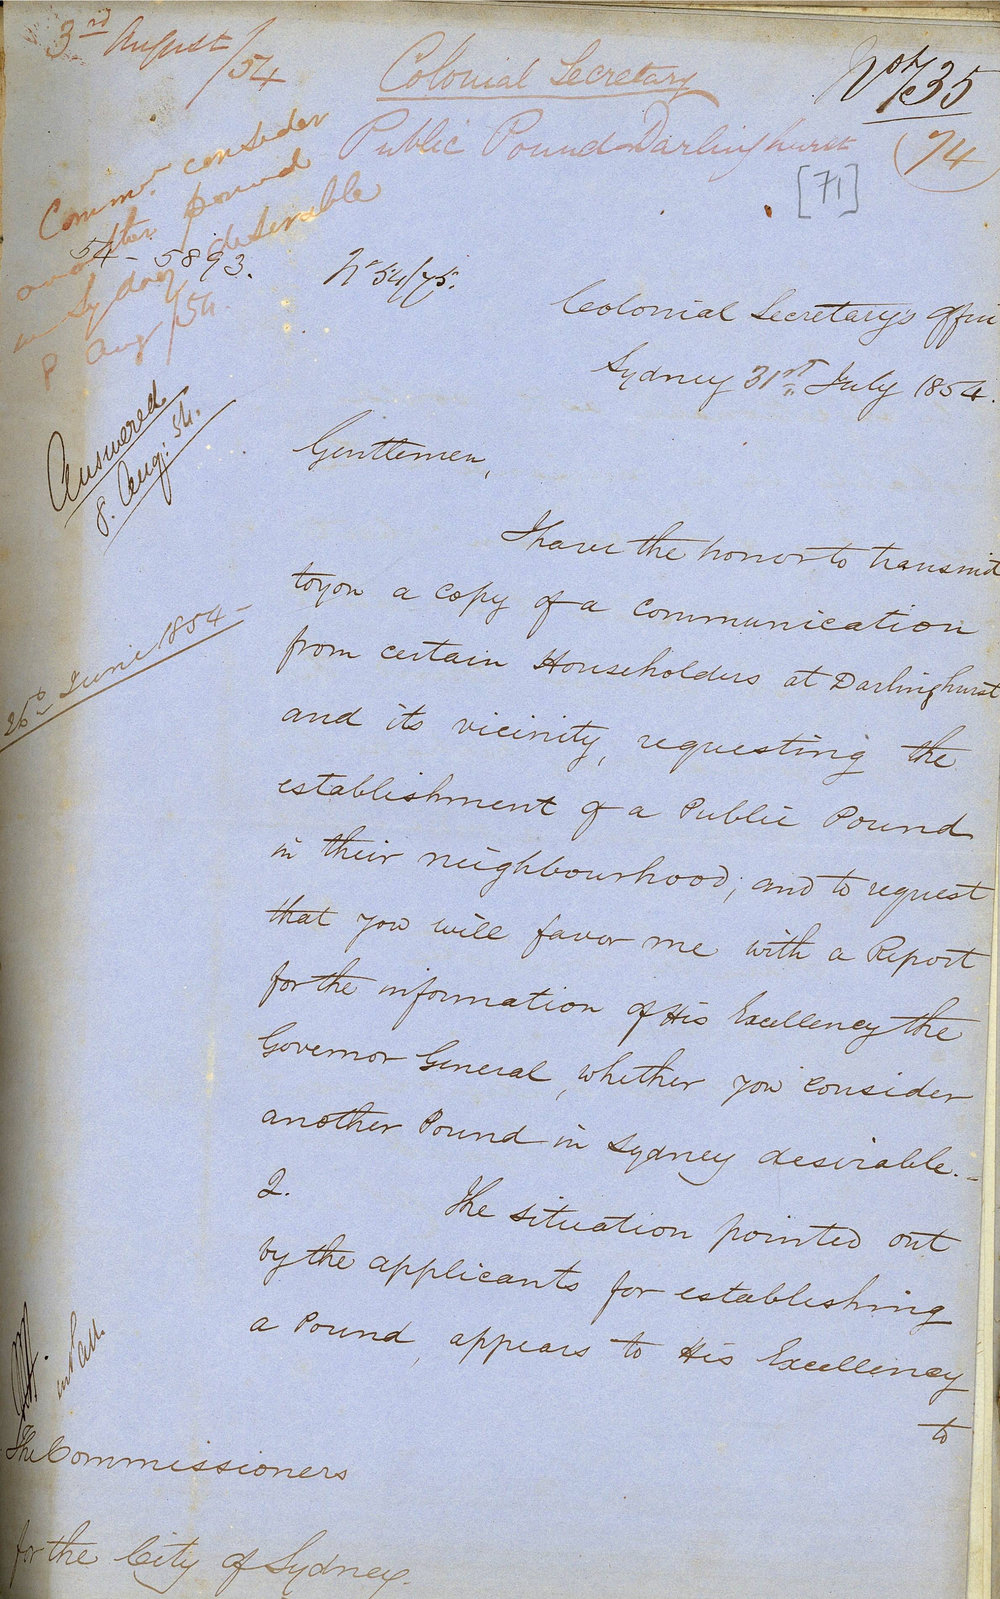 3rd August/54
Colonial Secretary
No 735
Public Pound Darlinghurst
74
[71]
Commrs. consider
another pound
in Sydney desirable
8 Aug/54.
54-5893.
No 54/75.
Colonial Secretary's Office
Sydney 31st July 1854.
Answered
8. Aug: 54.
Gentlemen,
I have the honor to transmit
to you a copy of a communication
26th June 1854
from certain Householders at Darlinghurst
and its vicinity, requesting the
establishment of a Public Pound
in their neighbourhood; and to request
that you will favor me with a Report
for the information of His Excellency the
Governor General, whether you consider
another Pound in Sydney desirable.-
2. The situation pointed out
by the applicants for establishing
a Pound, appears to His Excellency
to
The Commissioners
for the City of Sydney.